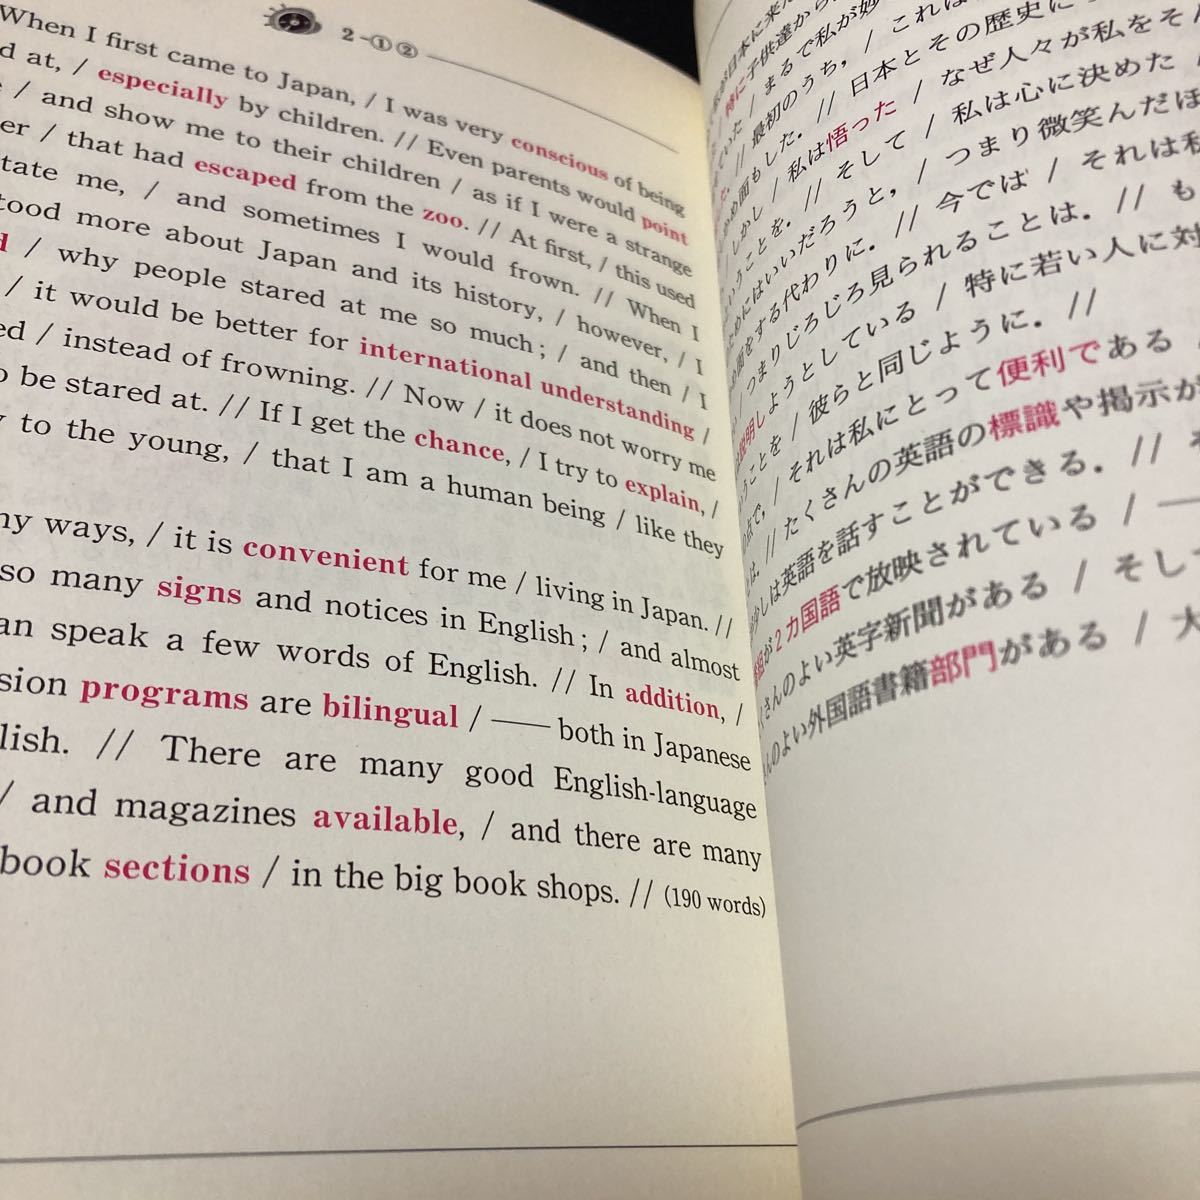 2-①②
When I first came to Japan, / I was very conscious of being
at, / especially by children. // Even parents would point
/ and show me to their children / as if I were a strange
/ that had escaped from the zoo. // At first, / this used
me, / and sometimes I would frown. // When I
more about Japan and its history, / however, / I
/ why people stared at me so much ; / and then / I
/ it would be better for international understanding /
/ instead of frowning. // Now / it does not worry me
be stared at. // If I get the chance, / I try to explain, /
to the young, / that I am a human being / like they
ways, / it is convenient for me / living in Japan. //
so many signs and notices in English ; / and almost
speak a few words of English. // In addition, /
programs are bilingual / —— both in Japanese
// There are many good English-language
/ and magazines available, / and there are many
book sections / in the big book shops. // (190 words)
日本に来た
特に子供達から
/ まるで私が妙
// 最初のうち, / これは
しかめ面もした. // 日本とその歴史に
しかし / 私は悟った / なぜ人々が私をそん
いうことを. // そして / 私は心に決めた /
ためにはいいだろうと, / つまり微笑んだほ
をする代わりに. // 今では / それは私
/ つまりじろじろ見られることは. // も
説明しようとしている / 特に若い人に対
ことを / 彼らと同じように. //
の点で, / それは私にとって便利である /
// たくさんの英語の標識や掲示が
少しは英語を話すことができる. // そ
が2カ国語で放映されている / —
さんのよい英字新聞がある / そして
のよい外国語書籍部門がある / 大